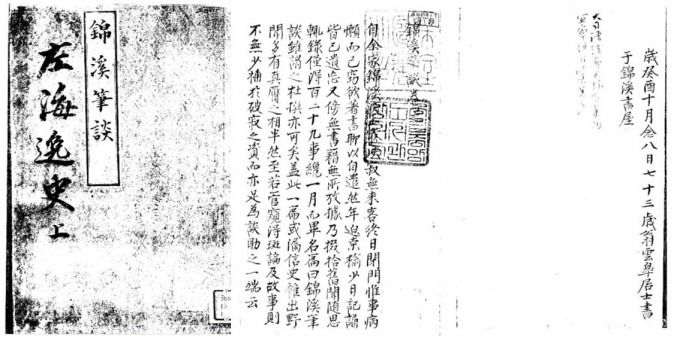 錦溪筆談
左海逸史 上
錦溪筆談
自余家錦溪無來客終日閉門惟事病
懶而已窃欲著書聊以自遣然年迫桑榆少日記誦
皆已遺忘又傍無書籍無所攷據乃掇拾舊聞隨思
輒錄僅得百二十九事纔一月而畢名篇曰錦溪筆
談雖謂之杜撰亦可矣盖此一篇或謂信史雜出野
聞多有真贋之相半然至若得斑論及故事則
不無少補於破寂之資而亦是爲談助之一端云
歲癸酉十月念八日七十三歲翁雲皐居士書
于錦溪書屋